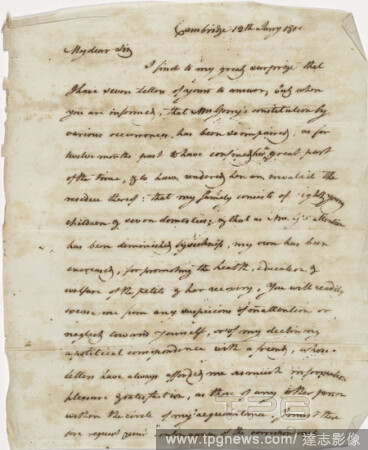 Cambridge 12th Jany
My dear Sir
I find to my great surprize that
I have seven letters of yours to answer, but when
you are informed, that Mrs Gerry's constitution by
various occurrences, has been so impaired, as for
twelve months past to have confined her great part
of the time, & to have rendered her an invalid the
residue thereof: that my family consists of eight young
children & seven domestics; & that as Mrs G's attention
has been diminished by sickness, my own has been
encreased, for promoting the health, education &
welfare of the petits & her recovery, You will readily
excuse me from any suspicions of inattention or
neglect toward yourself, or of my declining
a political correspondence with a friend, whose
letters have always afforded me as much information
pleasure & satisfaction, as those of any other person
within the circle of my acquaintance, I must there
fore request your of the correspondence
TPG
www.tpgnews.com / 達志影像